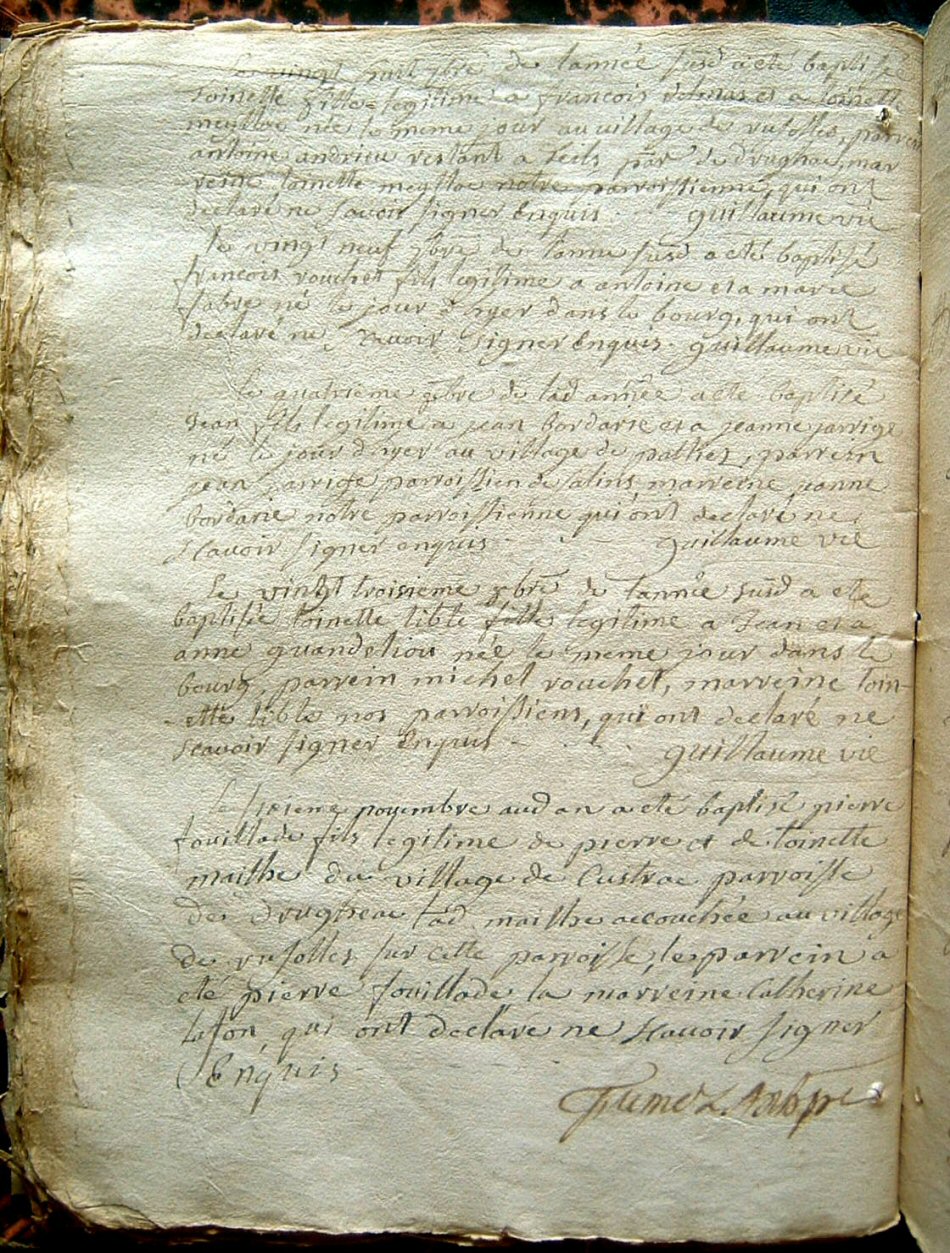 Le vingt huit 7bre de lannée susd a eté baptisée
toinette fille legitime a francois delmas et a toinette
née le meme jour au village de rufolles, parrein
antoine andrieu restant a par de drughac, mar
reine toinette notre parroissienne, qui ont
declaré ne savoir signer Enquis guillaume vié
le vingt neuf de lannee susd a eté baptisé
francois rouchet fils legitime a antoine et a marie
fabre né le jour d'hyer dans le bourg, qui ont
declaré ne savoir signer Enquis. guillaume vié
Le quatrieme de lad année a eté baptisé
Jean fils legitime a jean bordarie et a jeanne jarrige
né le jour d'hyer au village de parrein
jean jarrige parroissien de salins marreine jeanne
bordarie notre parroissienne qui ont declaré ne
scavoir signer enquis guillaume vié
Le vingt troisieme de lannée susd a eté
baptisée toinette tible fille legitime a Jean et a
anne née le meme jour dans le
bourg, parrein michel rouchet, marreine toin-
-ette tible nos parroissiens, qui ont declaré ne
scavoir signer Enquis - guillaume vié
Le novembre aud an a eté baptisé pierre
fouillade fils legitime de pierre et de toinette
maithe du village de parroisse
de drugheac lad maithe accouchée au village
de rufolles sur cette parroisse, le parrein a
eté pierre fouillade la marreine Catherine
lafon, qui ont declare ne scavoir signer
Enquis -